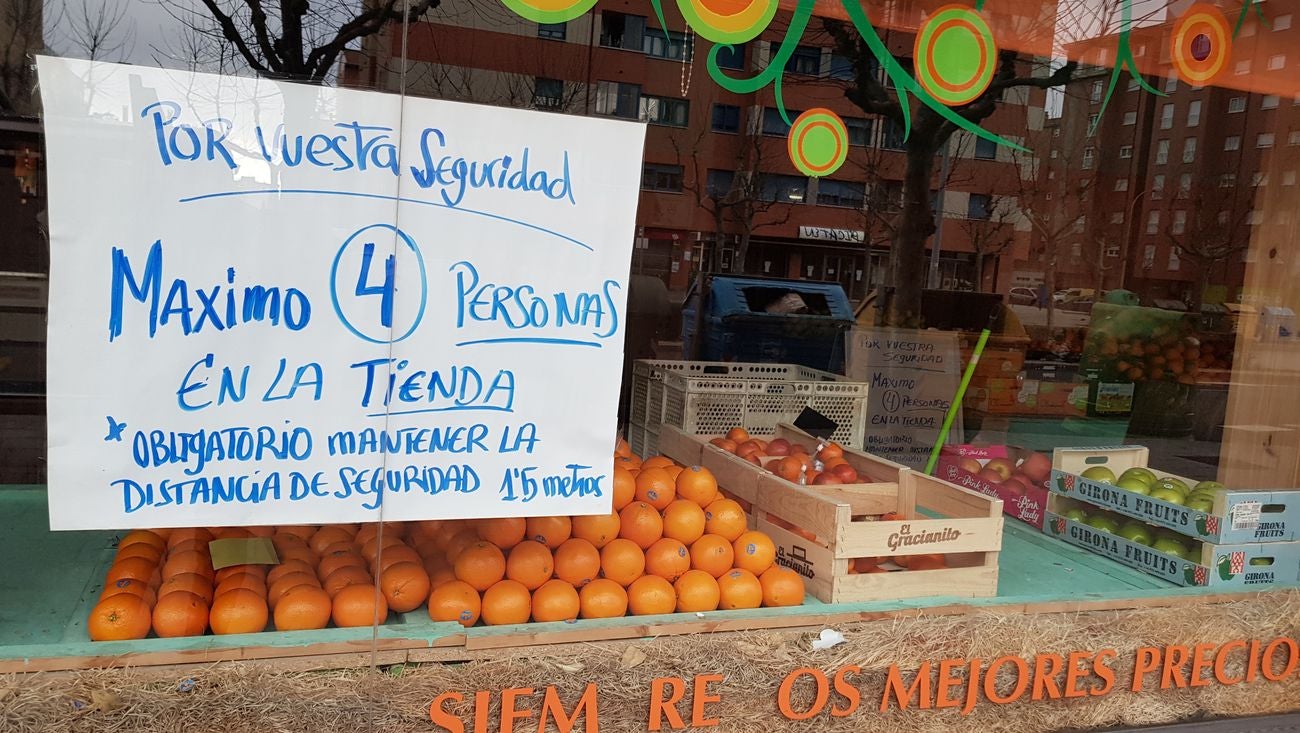 POR VUESTRA SEGURIDAD
MAXIMO 4 PERSONAS
EN LA TIENDA
* OBLIGATORIO MANTENER LA
DISTANCIA DE SEGURIDAD 1'5 metros
POR VUESTRA
SEGURIDAD
MAXIMO
4 PERSONAS
EN LA TIENDA
OBLIGATORIO
MANTENER
El Gracianito
El Gracianito
Pink Lady
Pink Lady
GIRONA FRUITS
GIRONA
GIRONA FRUITS
GIRONA
SIEM RE OS MEJORES PRECIO